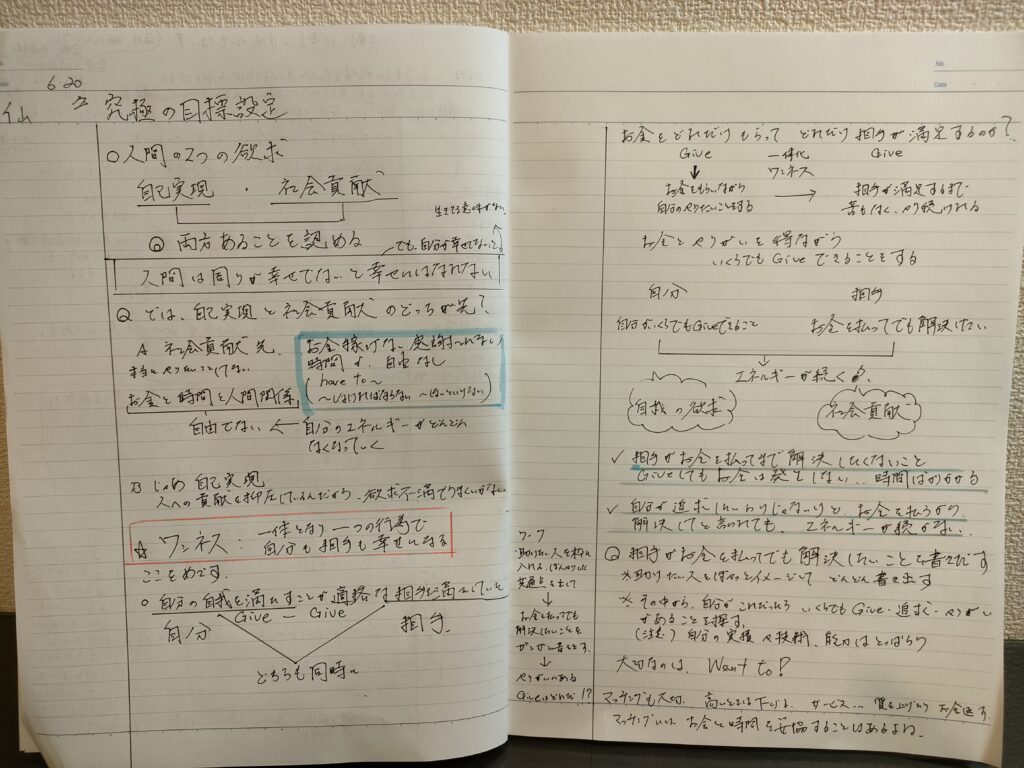 6.20
究極の目標設定
○人間の2つの欲求
自己実現 ・ 社会貢献
生きてる意味がない
◎ 両方あることを認める
でも、自分が幸せでないと
人間は周りが幸せでないと幸せにはなれない
Q では、自己実現と社会貢献のどっちが先?
A 社会貢献 先.
本当にやりたいことしてない
お金と時間と人間関係
自由でない ← 自分のエネルギーがどんどん
なくなっていく
お金稼げない 感謝されない
時間が、自由なし
have to~
~しなければならない ~ないといけない
B じゃあ 自己実現
人への貢献を抑圧しているんだから、欲求不満でうまくいかない
☆ ワンネス: 一体となり 一つの行為で
自分も相手も幸せになる
ここをめざす.
○ 自分の自我を満たすことが適格な相手を満たしていた
Give ー Give
自分 相手
どちらも同時に
No.
Date
お金をどれだけもらって どれだけ相手が満足するのか?
Give 一体化 Give
ワンネス
お金をもらいながら
自分のやりたいことをする
→ 相手が満足するまで
苦もなく、やり続けられる
お金とやりがいを得ながら
いくらでもGiveできることをする
自分 相手
自分がいくらでもGiveできること お金を払ってでも解決したい
エネルギーが続く
自我の欲求 社会貢献
✓ 相手がお金を払ってまで解決したくないこと
Giveしてもお金は発生しない.. 時間ばかりかかる
✓ 自分が追求したいわけじゃないけど、お金を払うから
解決してと言われても、エネルギーが続かない.
◎ 相手がお金を払ってでも解決したいことを書きだす
※助けたい人をぱっとイメージして どんどん書き出す
※ その中から、自分がこれだったら いくらでもGive・追求・やりがい
があることを探す.
(注意) 自分の実績や技術、能力はとっぱらう
大切なのは、Want to!
マッチングも大切. 高いときは下げる. サービス… 質を上げたり お金返す
マッチングいいと お金と時間を妥協することはあるよね.
ワーク
助けたい人を枠に
入れる.
共通点を出して
↓
お金を払っても
解決したいことを
ガンガン書きだす.
↓
やりがいのある
Giveはどれだ!?